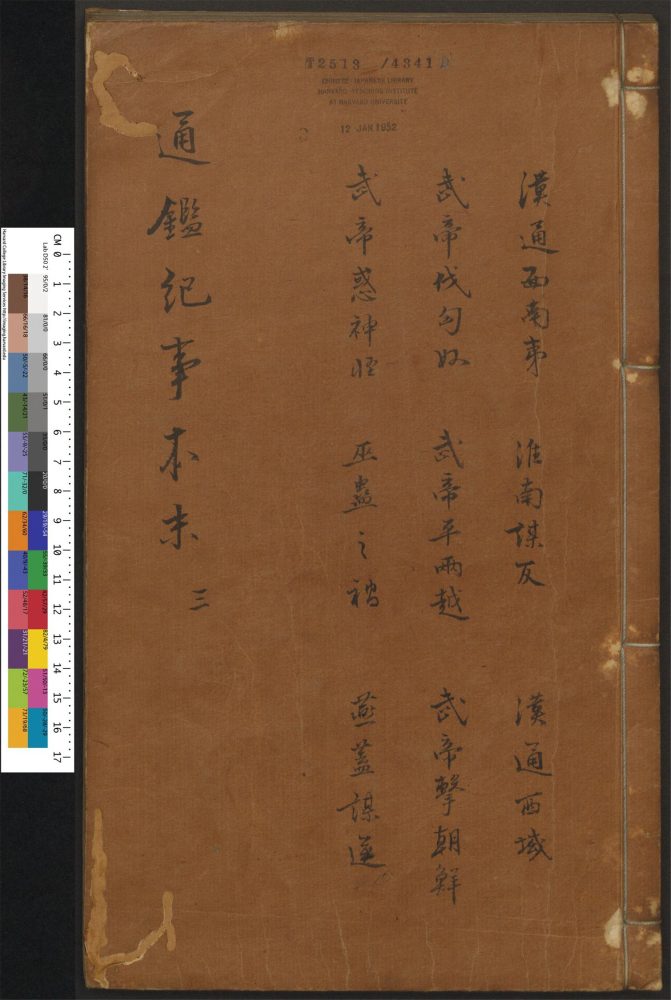 T2513 /4341
CHINESE-JAPANESE LIBRARY
HARVARD-YENCHING INSTITUTE
AT HARVARD UNIVERSITY
12 JAN 1952
漢通西南夷 淮南謀反 漢通西域
武帝伐匈奴 武帝平兩越 武帝擊朝鮮
武帝惑神怪 巫蠱之禍 燕蓋謀逆
通鑑紀事本末 三
CM 0 1 2 3 4 5 6 7 8 9 10 11 12 13 14 15 16 17